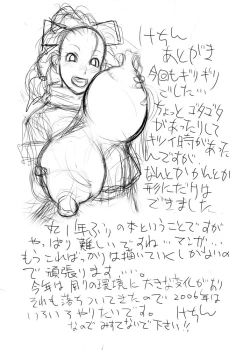 けちん
あとがき
今回もギリギリ
でした…
ちょっとゴタゴタ
があったりして
キツイ時があった
んですが、
なんとかかんとか
形にだけは
できました
丸1年ぶりの本ということですが
やっぱり難しいですね…マンガ…
もうこればっかりは描いていくしかないの
で頑張ります…。
今年は周りの環境に大きな変化があり
それも落ちついてきたので2006年は
いろいろやりたいです。
けちん
なのでみすてないで下さい!!